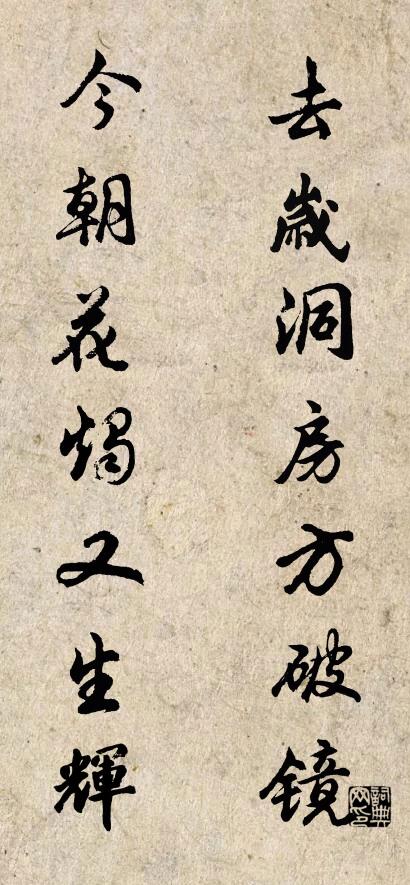 去歲洞房方破镜
今朝花燭又生輝
詞典
网印